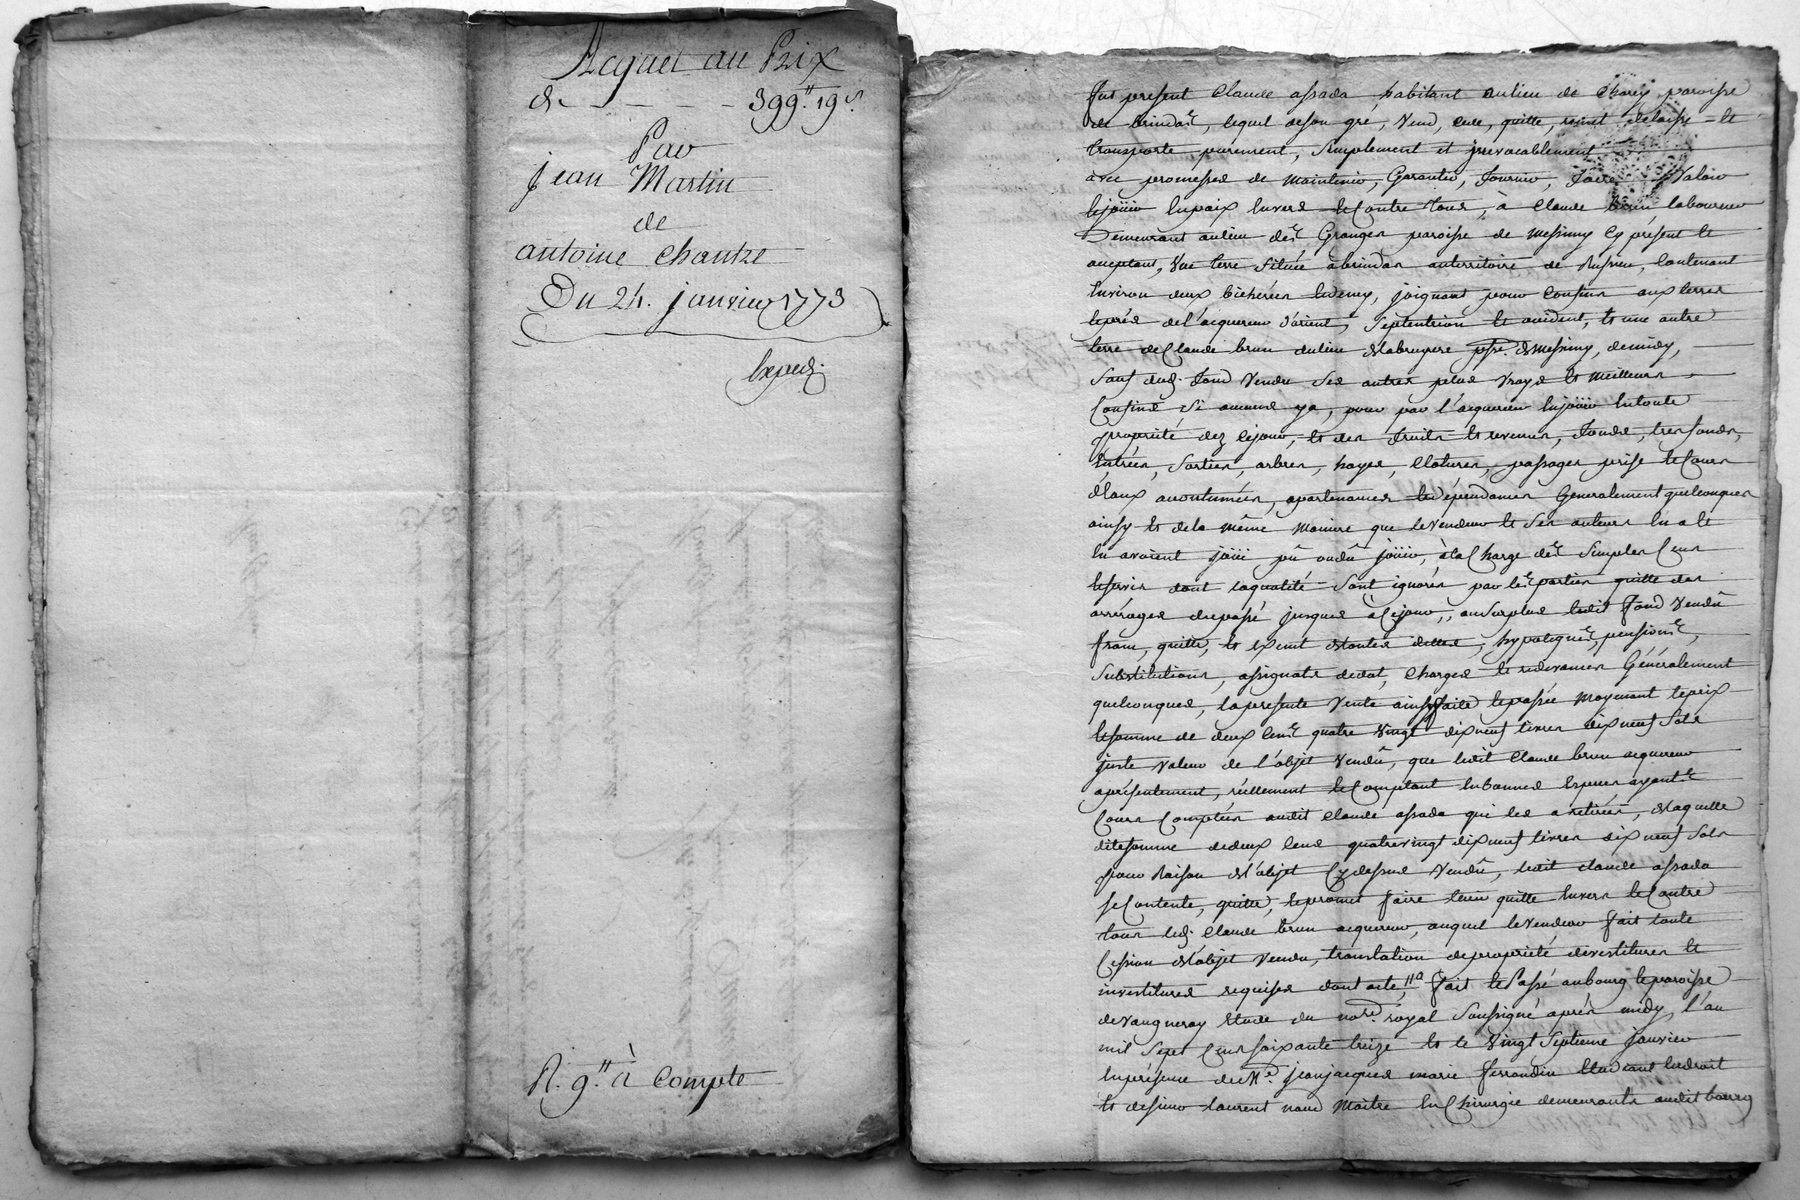 Acquet au Prix
de - - - - 399# 19s.
Par
Jean Martin
de
antoine chantre
Du 24. janvier 1773
Exped.
R. 9# à Compte
fut présent Claude assada habitant au lieu de paroisse
de brindas, lequel de son gré, Vend, cede, quitte, remet delaisse et
transporte purement, Simplement et jrrevocablement
avec promesses de Maintenir, Garantir, fournir, faire Valoir
Et joüir En paix Envers Et Contre tous, à Claude brun laboureur
Demeurant au lieu des Granges paroisse de Messimy Cy présent Et
aceptant, Une terre Située à brindas au territoire de Contenant
Environ deux bicherées Et demy, joignant pour Confins aux terres
Et prés de l'acquereur d'orient, Septentrion Et occident, Et une autre
terre de Claude brun du lieu de labruyere psse. de Messimy, de midy,
Sauf dud. fond Vendu Ses autres plus Vrays Et Meilleurs
Confins Si aucuns y a, pour par l'acquereur En joüir En toute
propriété dez Ce jour, Et des fruits Et revenus, fonds, tresfonds,
Entrées, Sorties, arbres, hayes, Clotures, passages, prise Et Cours
d'Eaux acoutumées, apartenances Et dépendances Generalement quelconques
ainsy Et de la même Maniere que le Vendeur Et Ses auteurs En a Et
En avoient joüi pû ou dû joüir, à la Charge des Simples Cens
Et Servis dont la quantité Sont ignorés par les parties quitte des
arrérages du passé jusques à Ce jour, au Surplus ledit fond Vendû
franc, quitte, Et Exempt de toutes dettes, hypoteques, pensions,
Substitutions, assignats de dot, Charges Et redevances Généralement
quelconques, la présente Vente ainsy faite Et passée Moyenant le prix
Et Somme de deux Cens quatre Vingt dix neuf livres dix neuf Sols
juste Valeur de l'objet Vendû, que ledit Claude brun acquereur
a présentement, réellement Et Comptant En bonnes Especes ayant
Cours Comptées audit Claude assada qui les a retirées, de laquelle
dite Somme de deux Cens quatre vingt dix neuf livres dix neuf Sols
pour Raison de l'objet Cy dessus Vendû, ledit Claude assada
Se Contente, quitte, Et promet faire tenir quitte Envers Et Contre
tous led. Claude brun acquereur, auquel le Vendeur fait toute
Cession de l'objet Vendu, translation de propriété devestitures Et
investitures requises dont acte, fait Et Passé au bourg Et paroisse
de Vaugneray Etude du nore. royal Soussigné après midy, l'an
mil Sept Cens soixante treize Et le Vingt Septieme janvier
En présence de Me. jean jacques marie ferrandin Etudiant En droit
Et de Sieur laurent Maitre En Chirurgie demeurants audit bourg